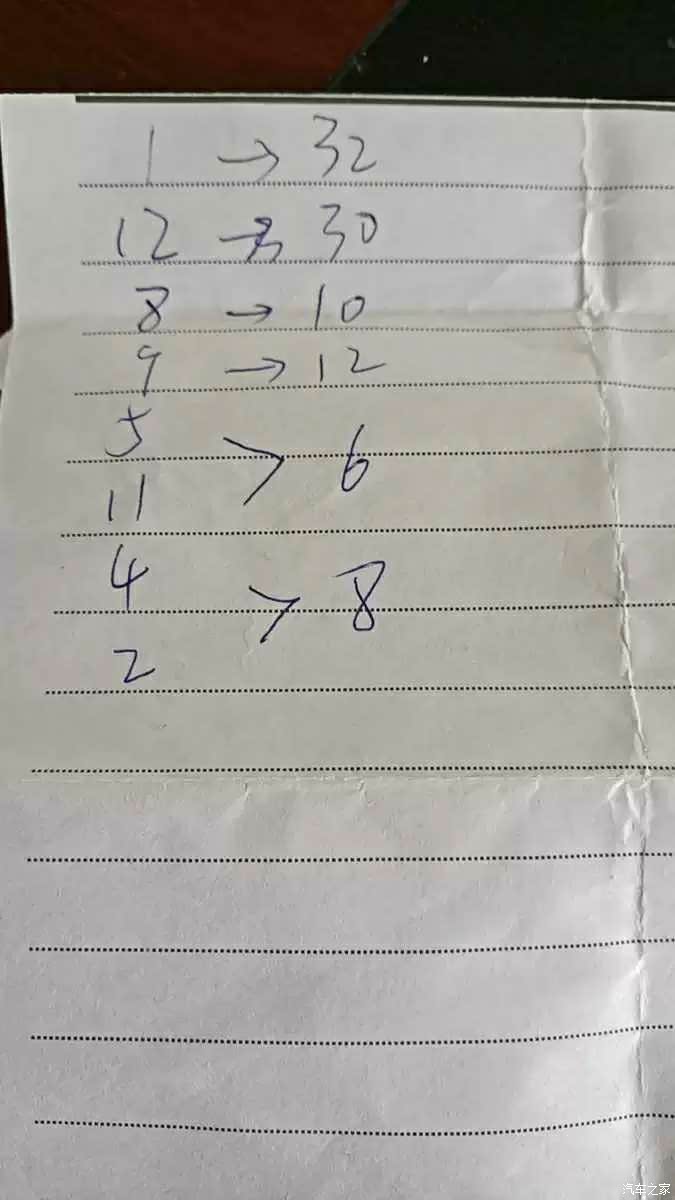 1 → 32
12 → 30
8 → 10
9 → 12
5
11
> 6
4
2
> 8
汽车之家